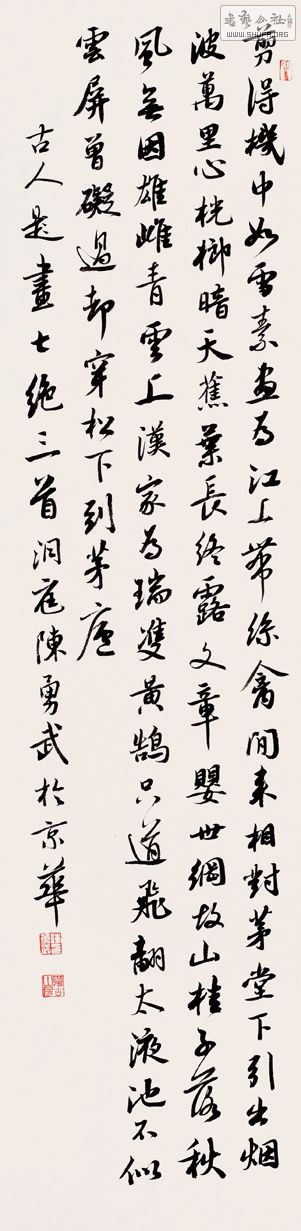 剪得機中如雪素畫為江上帶絲禽閒來相對茅堂下引出烟
波萬里心桄榔暗天蕉葉長終露文章嬰世網故山桂子落秋
風無因雄雌青雲上漢家為瑞雙黃鵠只道飛翻太液池不似
雲屏曾礙過却穿松下到茅廬
古人題畫七絕三首洞庭陳勇武於京華
WWW.SHUFA.ORG